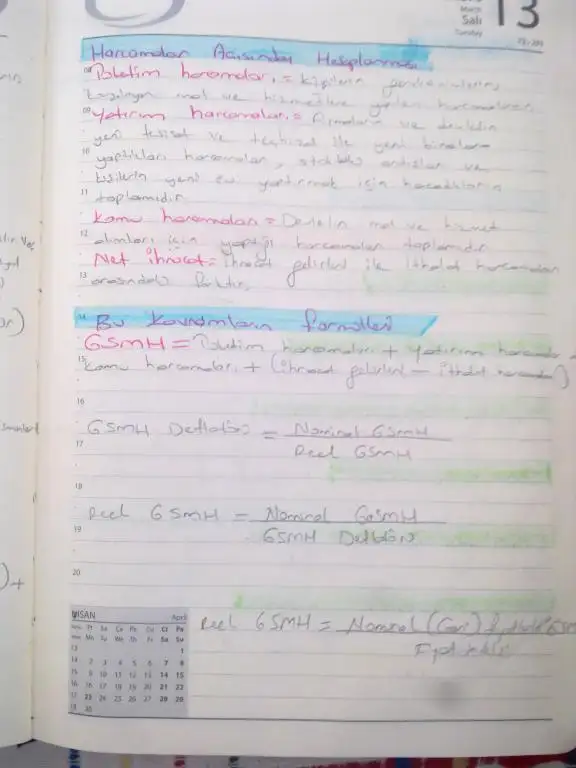 Mart
March
13
Salı
Tuesday
Harcamalar Açısından Hesplanması
Tüketim harcamaları = kişilerin gereksinimlerini
karşılayan mal ve hizmetlere yapılan harcamaların
09 Yatırım harcamaları = Firmaların ve devletin
yeni tesisat ve teçhizat ile yeni binalara
10 yaptıkları harcamaları, stoktaki artışlar ve
kişilerin yeni ev yaptırmak için harcadıkların
11 toplamıdır
Kamu harcamaları = Devletin mal ve hizmet
12 alımları için yaptığı harcamaları toplamıdır
Net ihracat = ihracat gelirleri ile ithalat harcamaları
13 arasındaki farktır.
14 Bu kavramların formülleri
GSMH = Tüketim harcamaları + Yatırım harcama +
15 kamu harcamaları + (ihracat gelirleri - ithalat harcamaları)
16
GSMH Deflatörü = Nominal GSMH
17 Reel GSMH
18
Reel GSMH = Nominal GSMH
19 GSMH Deflatör
20
NİSAN April
Pt Sa Ça Pe Cu Ct Pa
Mo Tu We Th Fr Sa Su
13 1
14 2 3 4 5 6 7 8
15 9 10 11 12 13 14 15
16 16 17 18 19 20 21 22
17 23 24 25 26 27 28 29
18 30
Reel GSMH = Nominal (Cari) fiyatlarla GSM
Fiyat